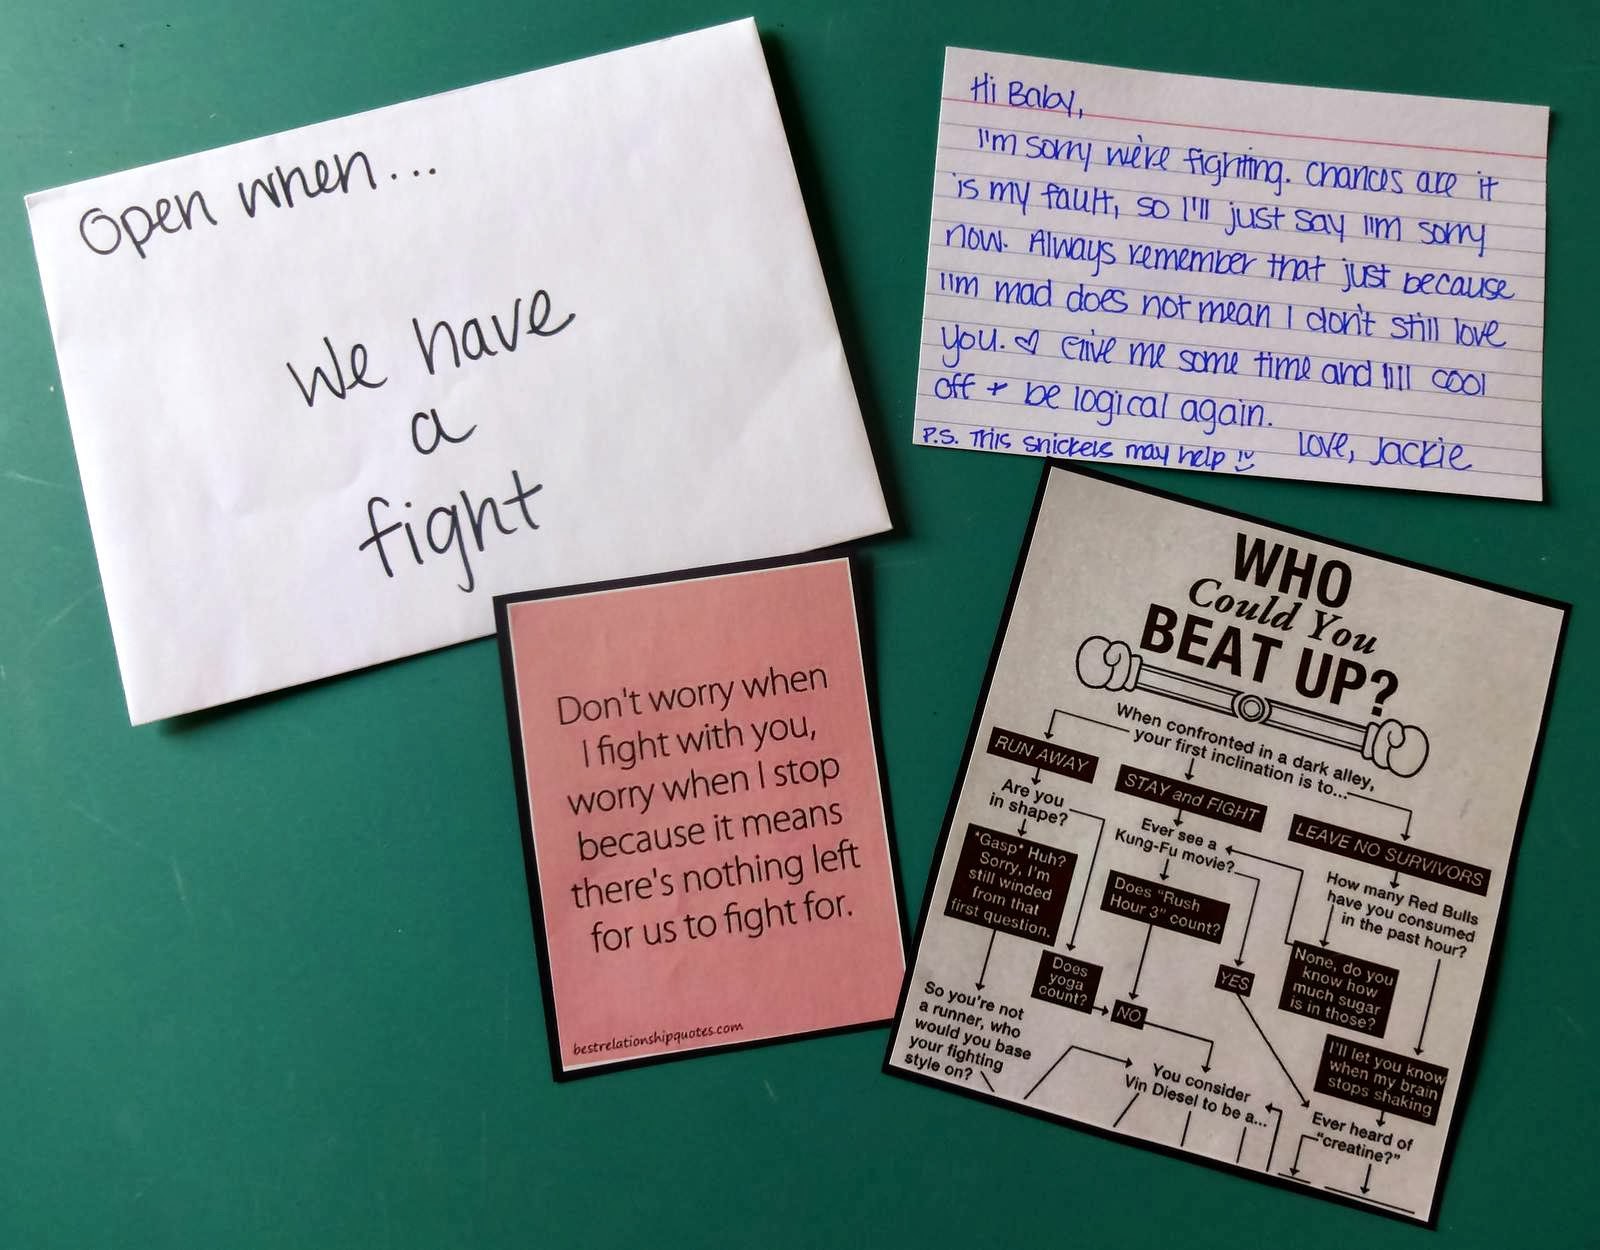 Open when...
We have
a
fight
Hi Baby,
I'm sorry we're fighting. Chances are it
is my fault, so I'll just say I'm sorry
now. Always remember that just because
I'm mad does not mean I don't still love
you. ♡ Give me some time and I'll cool
off + be logical again.
Love, Jackie
P.S. This snickers may help :)
Don't worry when
I fight with you,
worry when I stop
because it means
there's nothing left
for us to fight for.
bestrelationshipquotes.com
WHO
Could You
BEAT UP?
When confronted in a dark alley,
your first inclination is to...
RUN AWAY
Are you
in shape?
*Gasp* Huh?
Sorry, I'm
still winded
from that
first question.
Does
yoga
count?
So you're not
a runner, who
would you base
your fighting
style on?
STAY and FIGHT
Ever see a
Kung-Fu movie?
Does "Rush
Hour 3" count?
NO
YES
You consider
Vin Diesel to be a...
LEAVE NO SURVIVORS
How many Red Bulls
have you consumed
in the past hour?
None, do you
know how
much sugar
is in those?
I'll let you know
when my brain
stops shaking
Ever heard of
"creatine?"